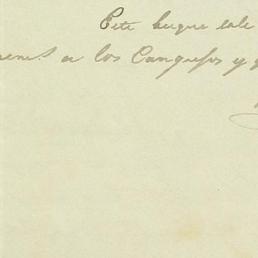 Este buque sale
a los Canguesos y